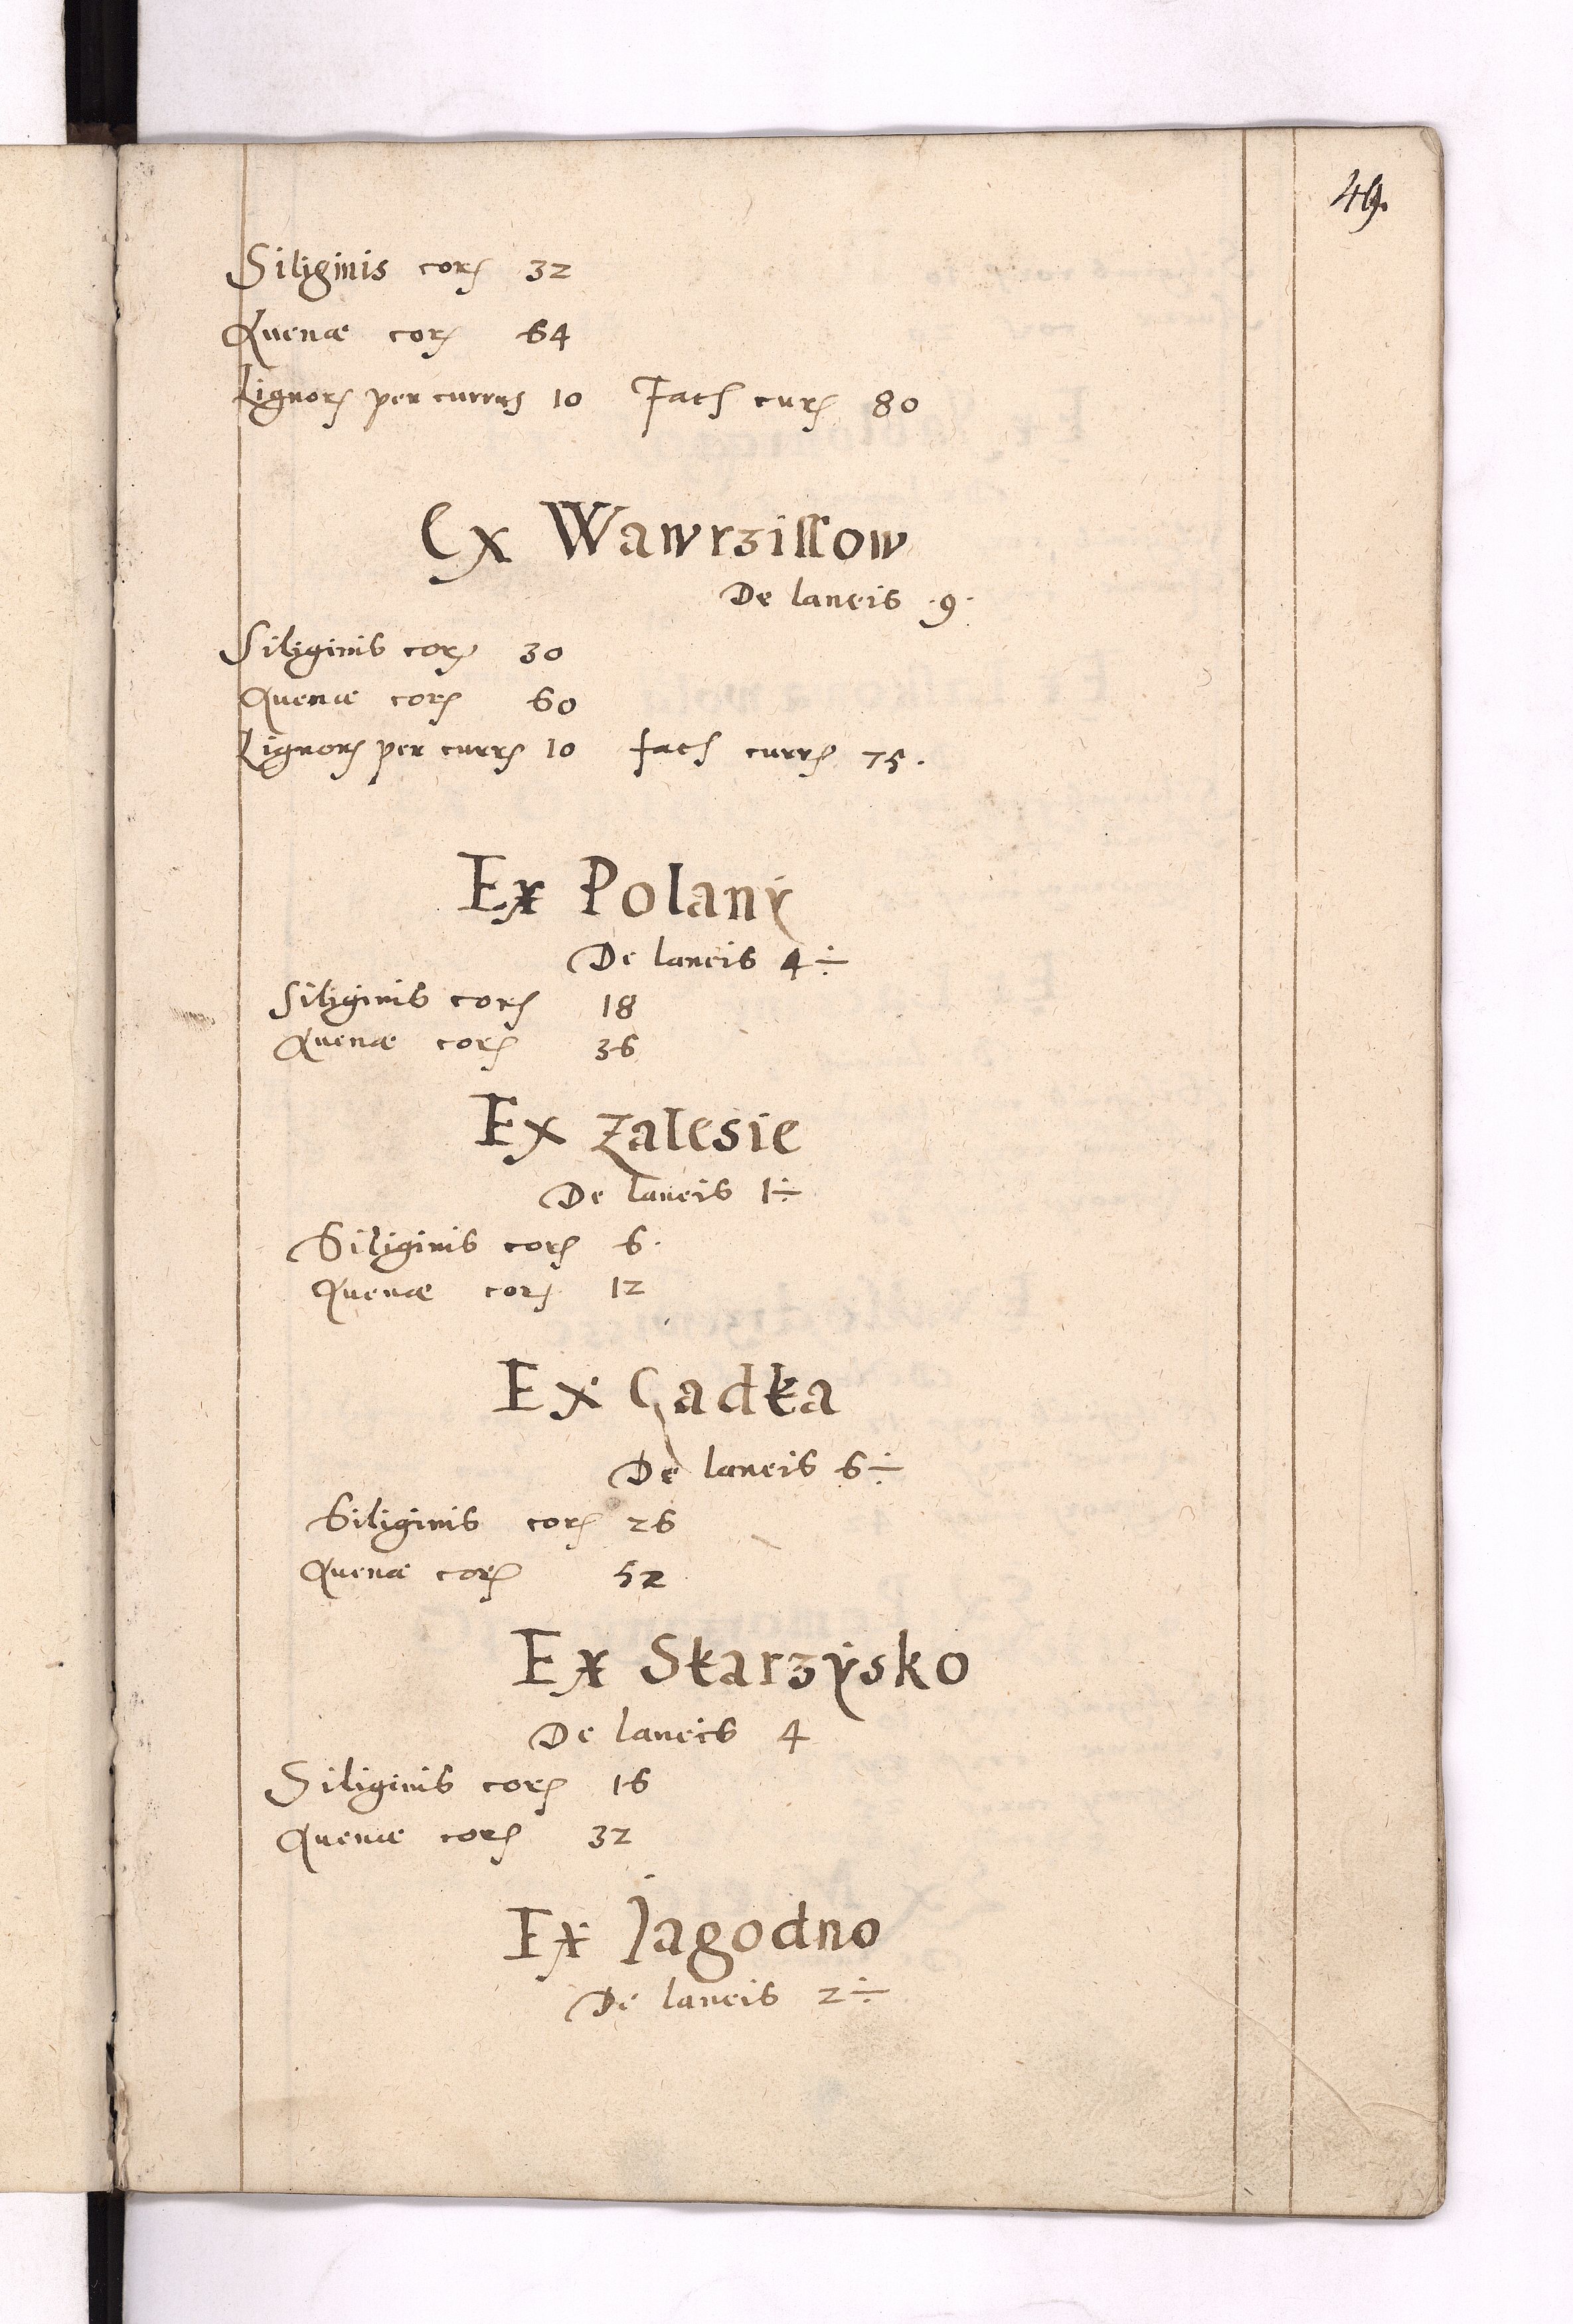 49.
Siliginis corꝭ 32
Auenæ corꝭ 64
Lignorꝭ per currus 10 Facꝭ curꝭ 80
Ex Wawrziſſow
De laneis ·9·
Siliginis corꝭ 30
Auenæ corꝭ 60
Lignorꝭ per currꝭ 10 facꝭ currꝭ 75.
Ex Polanÿ
De laneis 4 ÷
Siliginis corꝭ 18
Auenæ corꝭ 36
Ex Zalesie
De laneis 1 ÷
Siliginis corꝭ 6.
Auenæ corꝭ 12
Ex Gadka
De laneis 6 ÷
Siliginis corꝭ 26
Auenæ corꝭ 52
Ex Skarzÿsko
De laneis 4
Siliginis corꝭ 16
Auenæ corꝭ 32
Ex Jagodno
De laneis 2 ÷